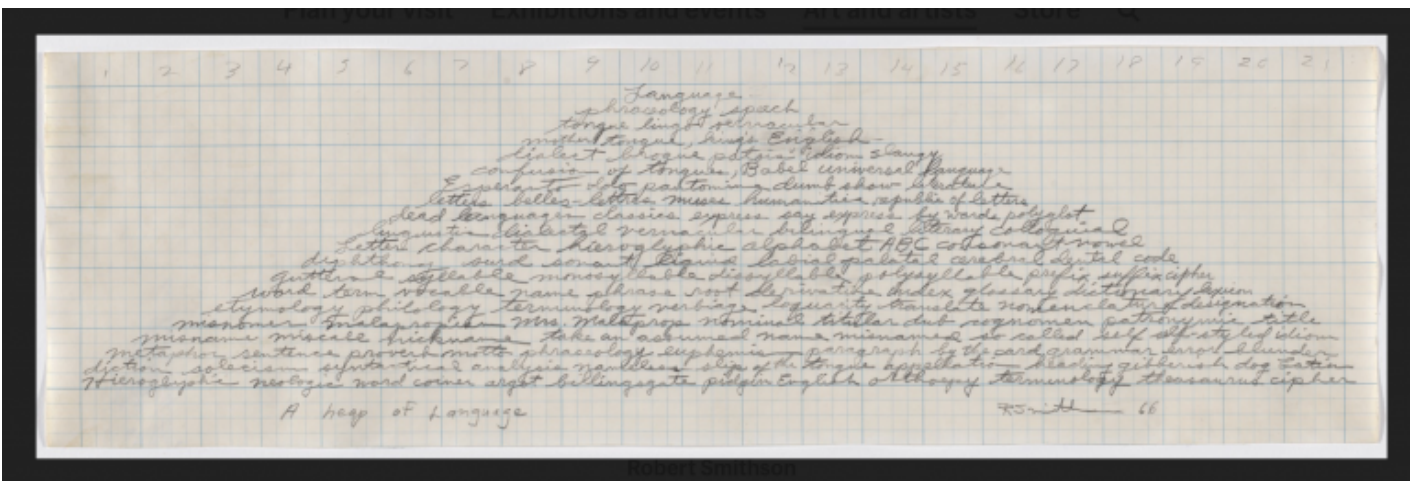 Plan your visit Exhibitions and events Art and artists Store
1 2 3 4 5 6 7 8 9 10 11 12 13 14 15 16 17 18 19 20 21
Language
phraseology speech
tongue lingo vernacular
mother tongue, King's English
dialect brogue patois idiom slangy
confusion of tongues, Babel universal language
Esperanto Ido pantomime dumb show literature
letters belles-lettres muses humanities republic of letters
dead languages classics express say express by words polyglot
linguistic dialectal vernacular bilingual literary colloquial
letter character hieroglyphic alphabet ABC consonant vowel
diphthong surd sonant liquid labial palatal cerebral dental code
guttural syllable monosyllable dissyllable polysyllable prefix suffix cipher
word term vocable name phrase root derivative index glossary dictionary lexicon
etymology philology terminology verbiage translate designation
misnomer malapropism Mrs. Malaprop nominal titular dub cognomen patronymic title
misname miscall nickname take an assumed name misnamed so called self self-styled idiom
metaphor sentence proverb motto phraseology euphemism paragraph by the card grammar error blunder
diction solecism syntactical analysis slip of the tongue appellation gibberish dog Latin
Hieroglyphic neologic word coiner argot billingsgate pidgin English orthoepy terminology thesaurus cipher
A heap of Language
RSmithson 66
Robert Smithson